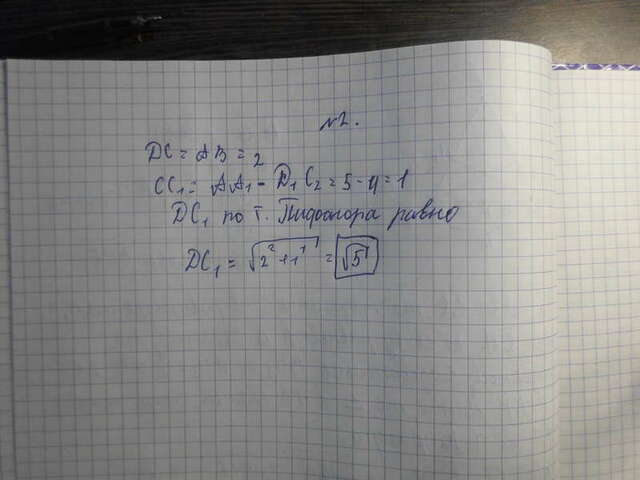 №2.
DC = AB = 2
CC₁ = AA₁ - D₁C₂ = 5 - 4 = 1
DC₁ по т. Пифагора равно
DC₁ = √2² + 1¹ = √5